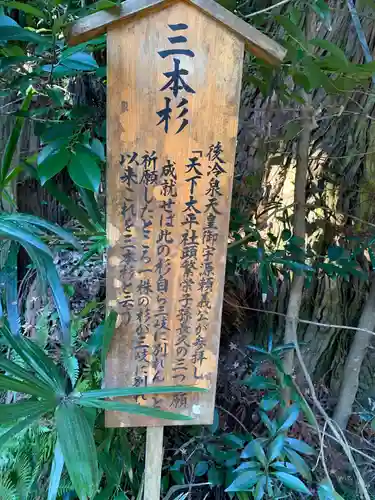 三本杉
後冷泉天皇御宇源頼義公が参拝し
「天下太平社頭繁栄子孫長久の三つの願
成就せば此の杉自ら三岐に別れよ」と
祈願したところ一株の杉が三岐に
以来これを三本杉と云う